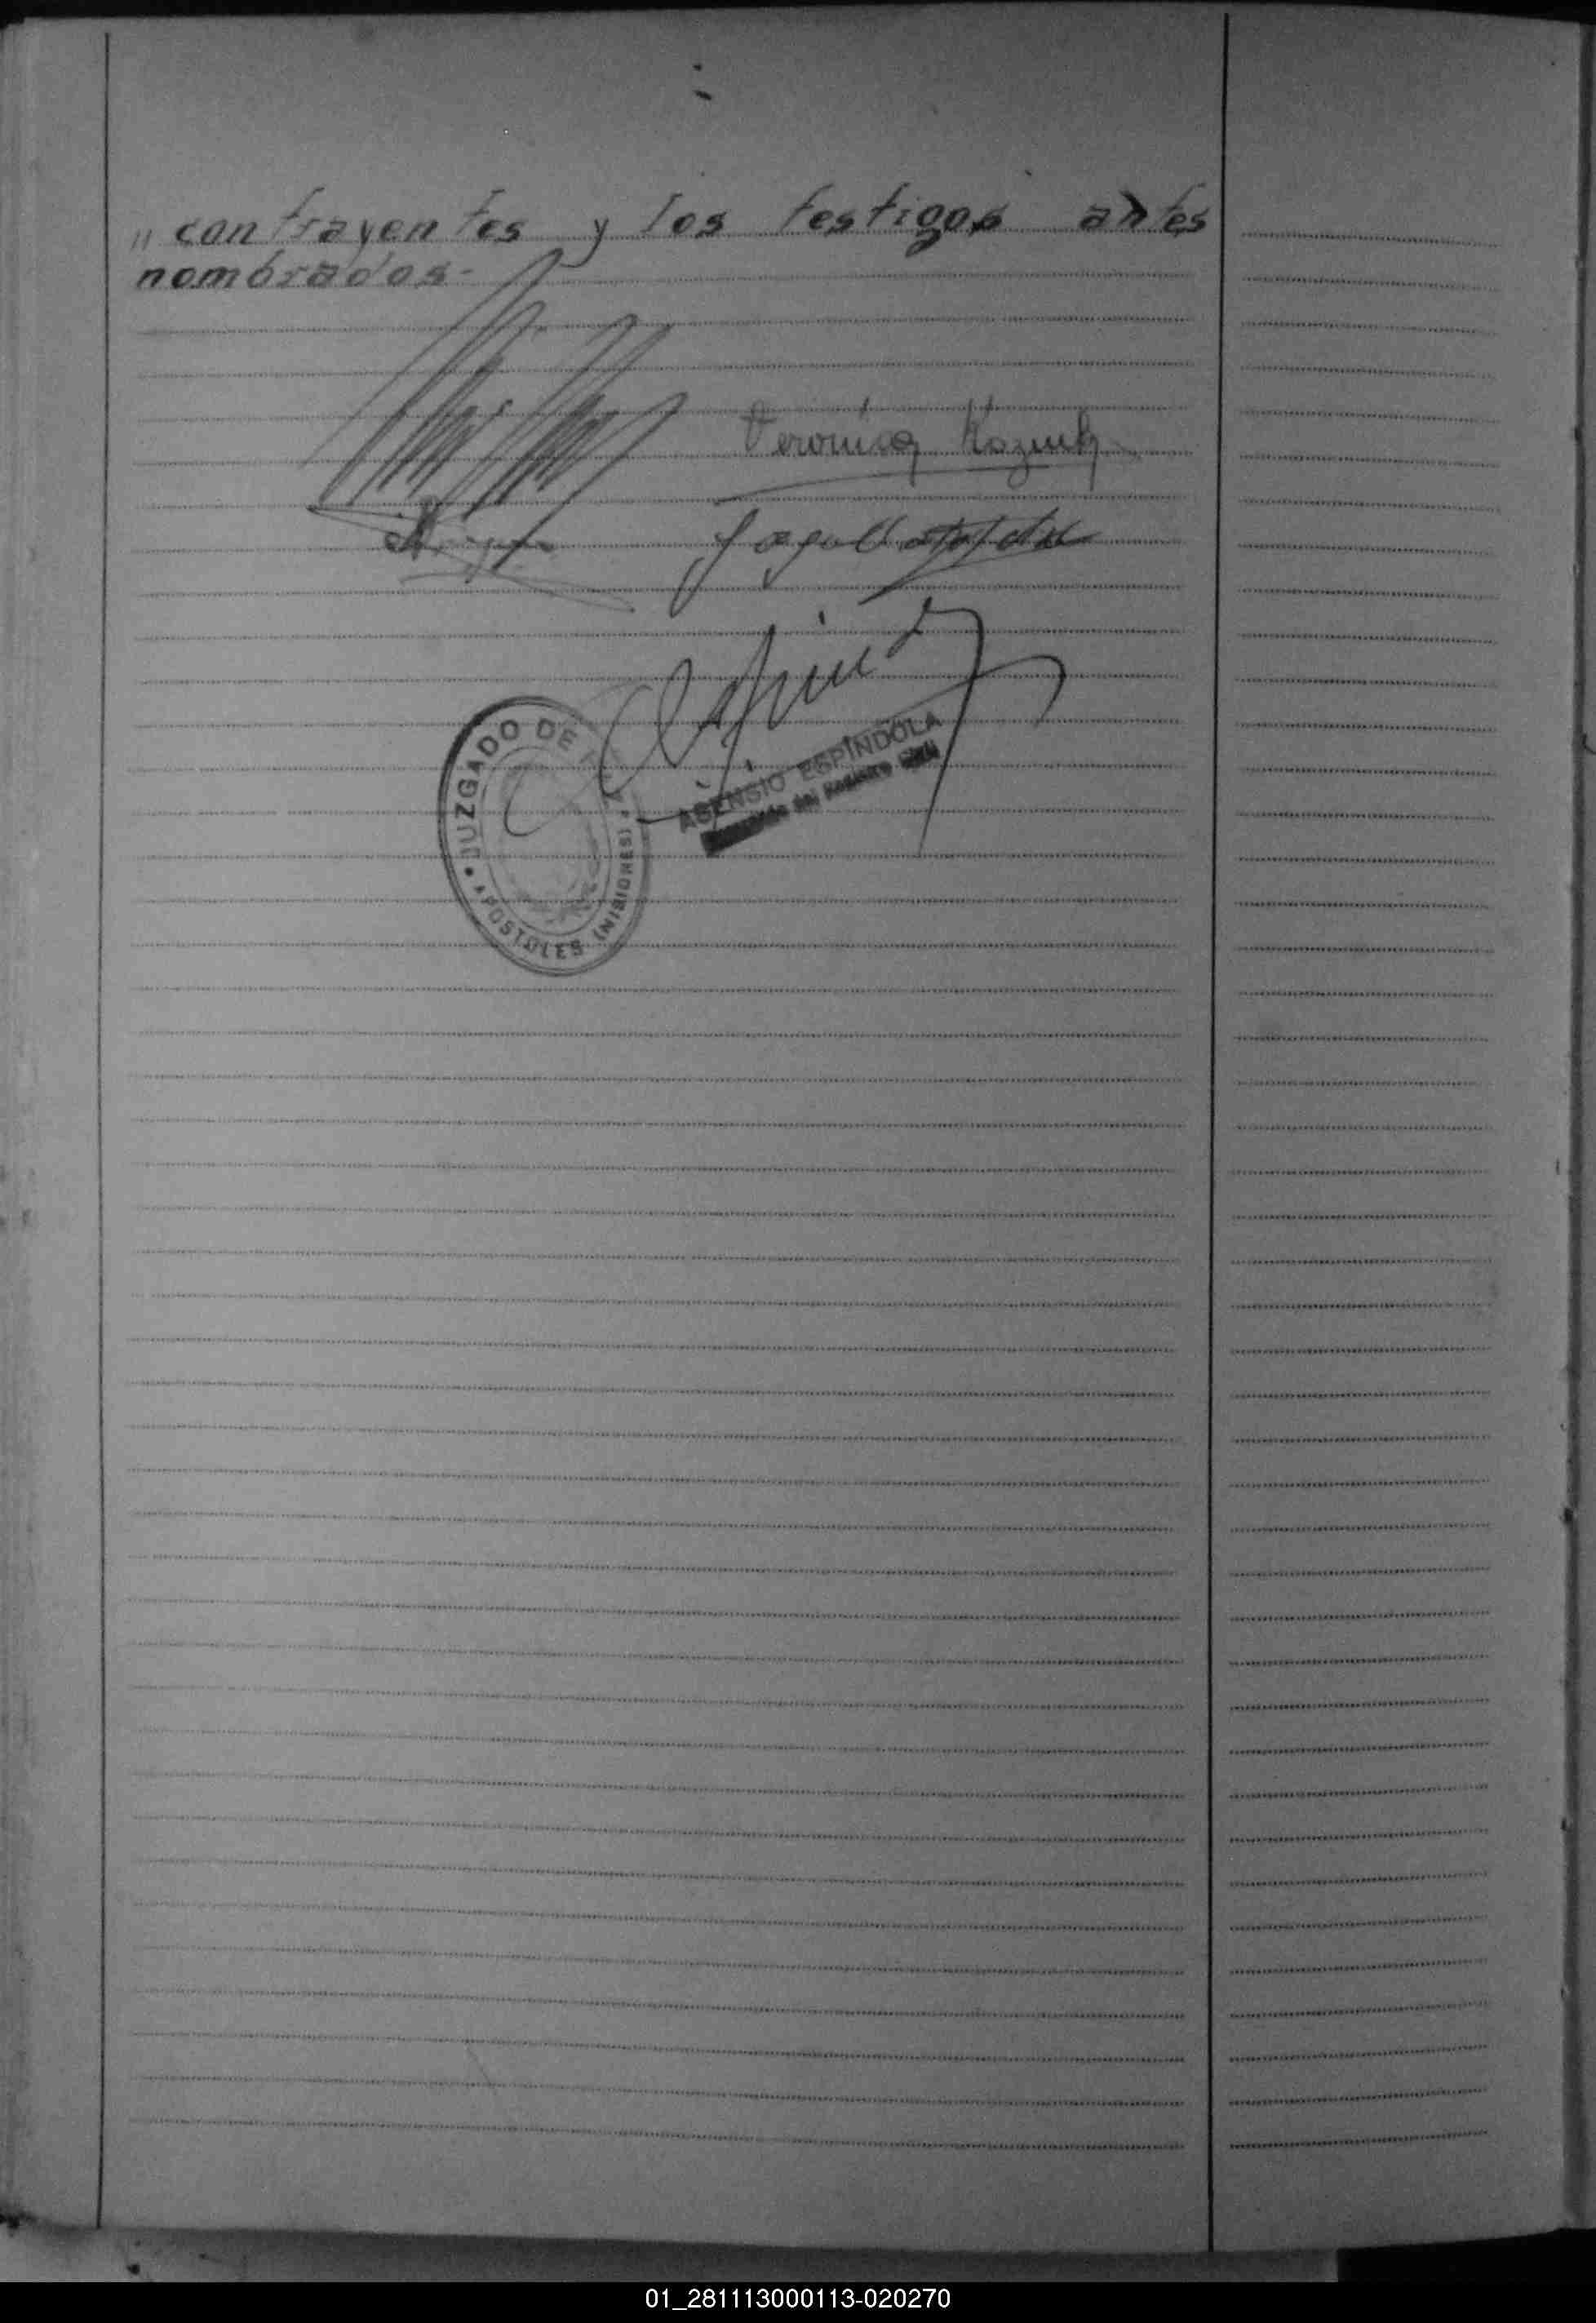 „ contrayentes y los testigos antes
nombrados-
Veronica Kozmik
JUZGADO DE
APOSTOLES (MISIONES)
ASENSIO ESPINDOLA
del Registro Civil
01_281113000113-020270